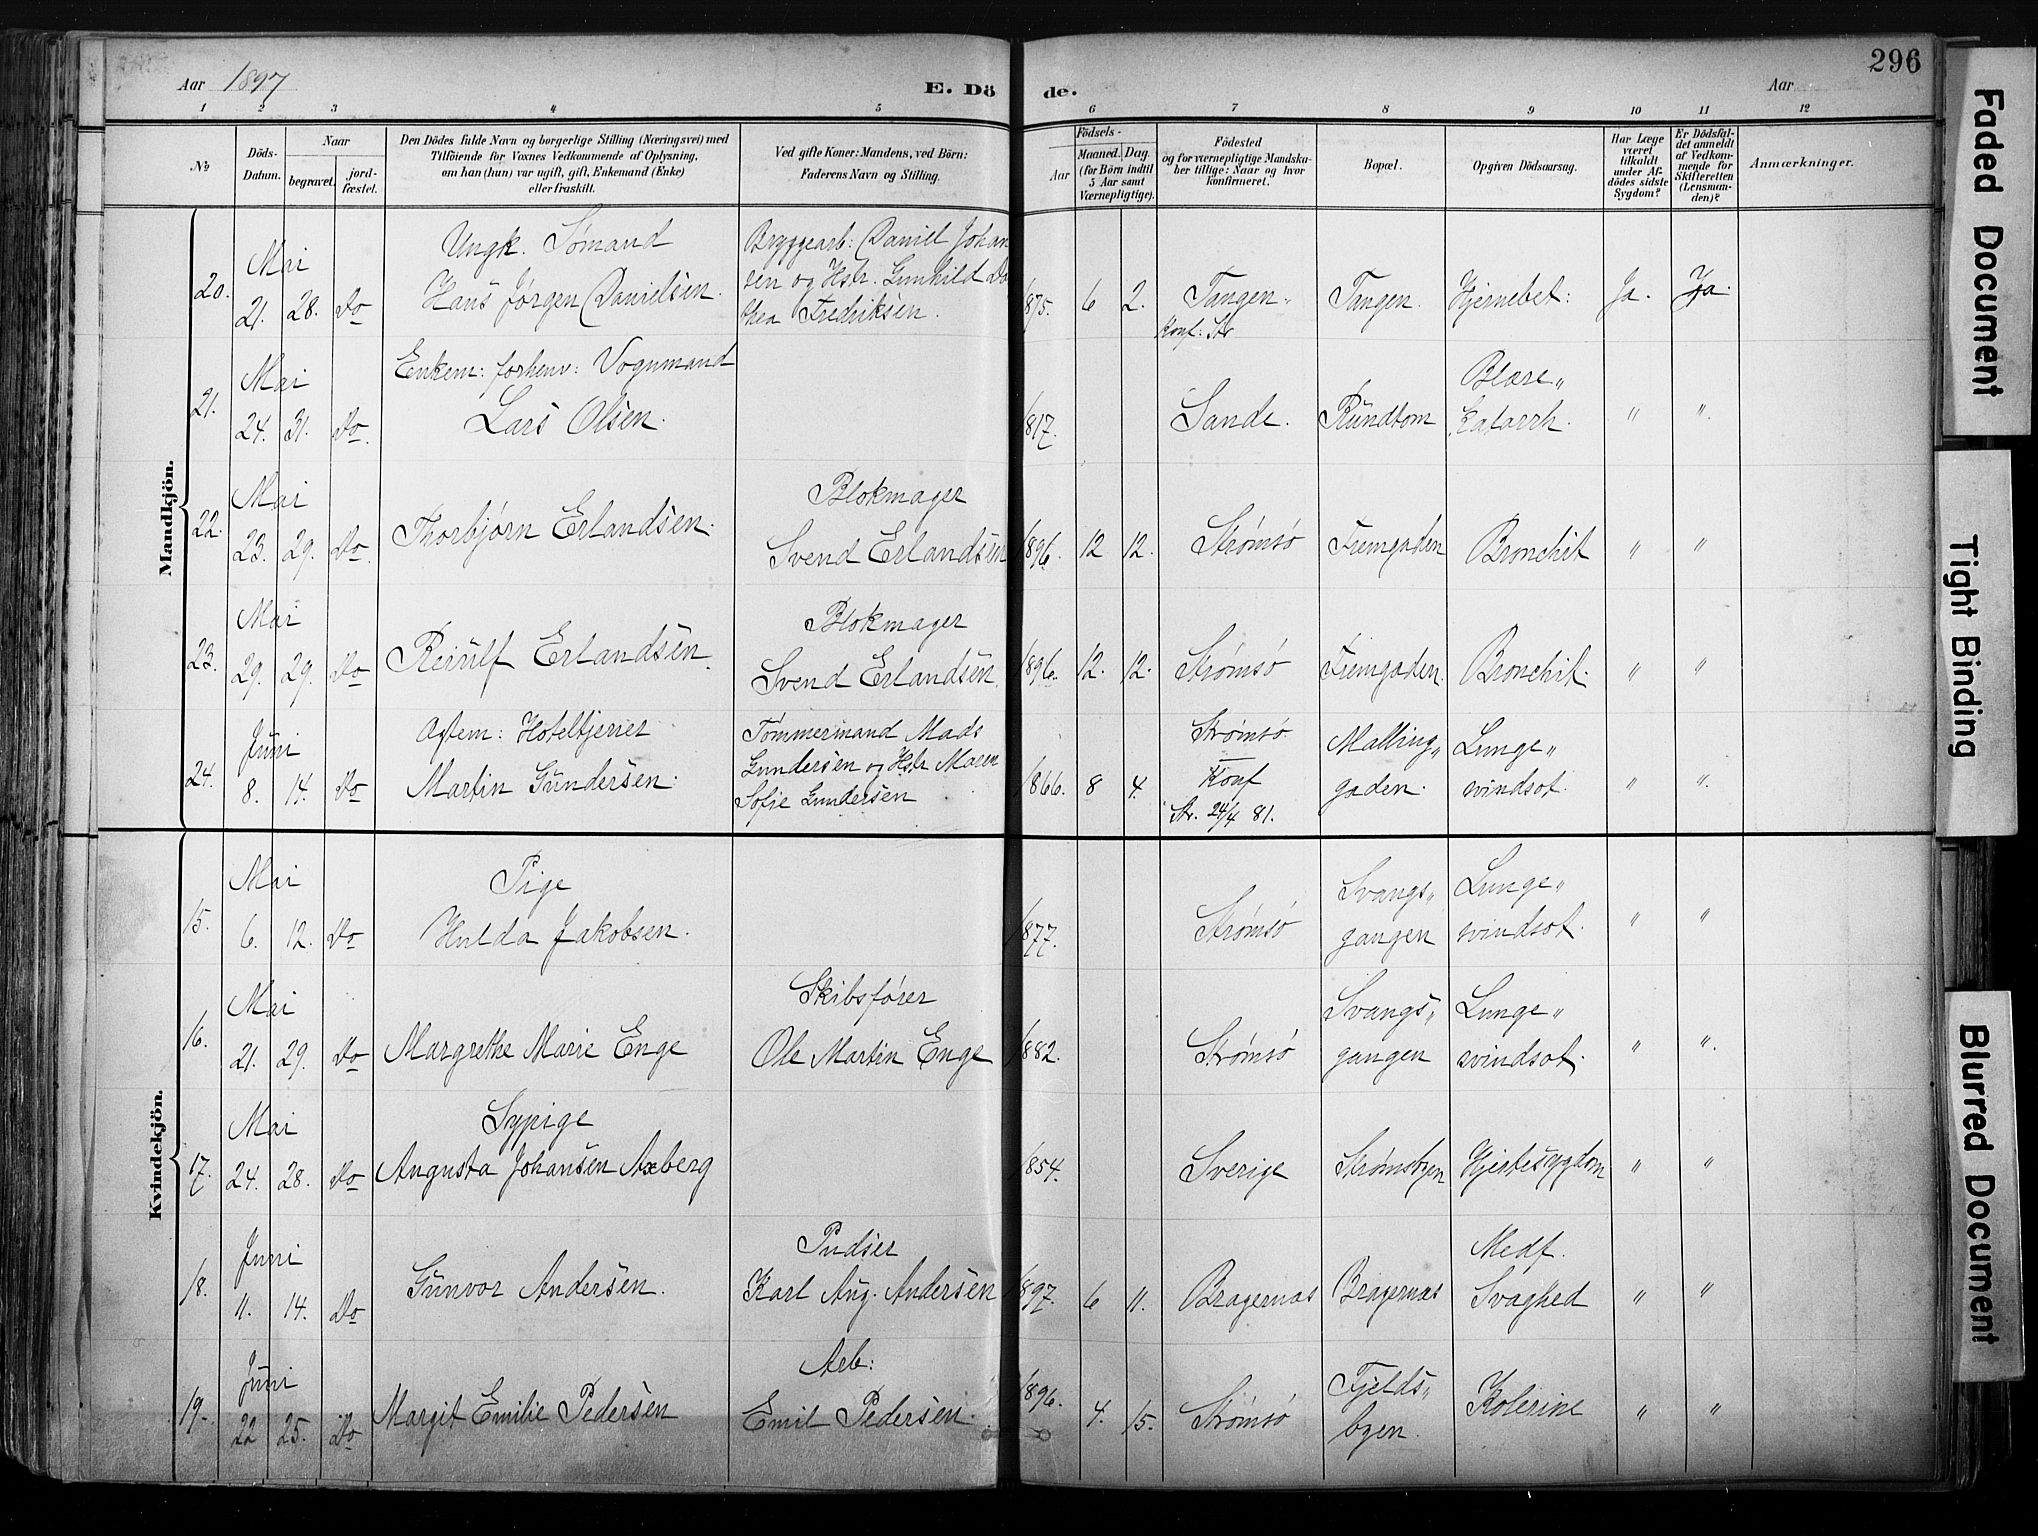 Aar 1897
E. Dö
de.
Aar
296
1 2 3 4 5 6 7 8 9 10 11 12
No
Döds-
Datum.
Naar
begravet.
jord-
fæstet.
Den Dödes fulde Navn og borgerlige Stilling (Næringsvei) med
Tilföiende for Voxnes Vedkommende af Oplysning,
om han (hun) var ugift, gift, Enkemand (Enke)
eller fraskilt.
Ved gifte Koner: Mandens, ved Börn:
Faderens Navn og Stilling.
Födsels-
Aar
Maaned. Dag
(for Börn indtil
5 Aar samt
Værnepligtige).
Födested
og for værnepligtige Mandska-
ber tillige: Naar og hvor
konfirmeret.
Bopæl.
Opgiven Dödsaarsag.
Har Læge
været
tilkaldt
under Af-
dödes sidste
Sygdom?
Er Dödsfal-
det anmeldt
af Vedkom-
mende for
Skifteretten
(Lensman-
den)?
Anmærkninger.
Mandkjön.
20.
Mai
21. 28. Do
Ungk. Sømand
Hans Jørgen Danielsen.
Bryggearb: Daniel Johan
sen og Hstr. Gunhild Do
thea Fredriksen.
1875. 6 2.
Tangen
Konf: Str
Tangen.
Hjernebet:
Ja. Ja.
21.
Mai
24. 31. Do.
Enkem: forhenv: Vognmand
Lars Olsen.
1817.
Sande.
Rundtom
Blære„
katarrh.
„ „
22.
Mai
23. 29. Do.
Thorbjørn Erlandsen.
Blokmager
Svend Erlandsen
1896. 12 12.
Strømsø
Fremgaden
Bronchit
„ „
23.
Mai
29. 29. Do
Reiulf Erlandsen.
Blokmager
Svend Erlandsen.
1896. 12. 12.
Strømsø
Fremgaden.
Bronchit.
„ „
24.
Juni
8. 14. Do
Ægtem: Hoteltjener
Martin Gundersen.
Tømmermand Mads
Gundersen og Hstr Maren
Sofie Gundersen
1866. 8 4.
Strømsø.
Konf
Str. 24/4 81.
Malling„
gaden.
Lunge„
svindsot.
„ „
Kvindekjön.
15.
Mai
6. 12. Do
Pige
Hulda Jakobsen.
1877.
Strømsø
Svangs„
gangen
Lunge„
svindsot.
„ „
16.
Mai
21. 29. Do
Margrethe Marie Enge
Skibsfører
Ole Martin Enge
1882.
Strømsø
Svangs„
gangen
Lunge„
svindsot.
„ „
17.
Mai
24. 28. Do
Sypige
Augusta Johansen Axberg
1854.
Sverige
Strømsbyen
Hjertesygdom
„ „
18.
Juni
11. 14. Do
Gunvor Andersen.
Pudser
Karl Aug. Andersen
1897. 6 11.
Bragernas
Bragernas
Medf.
Svaghed
„ „
19.
Juni
22 25. Do
Margit Emilie Pedersen
Arb:
Emil Pedersen.
1896. 4. 15.
Strømsø
Fjelds„
byen.
Kolerine
„ „
Faded Document
Tight Binding
Blurred Document